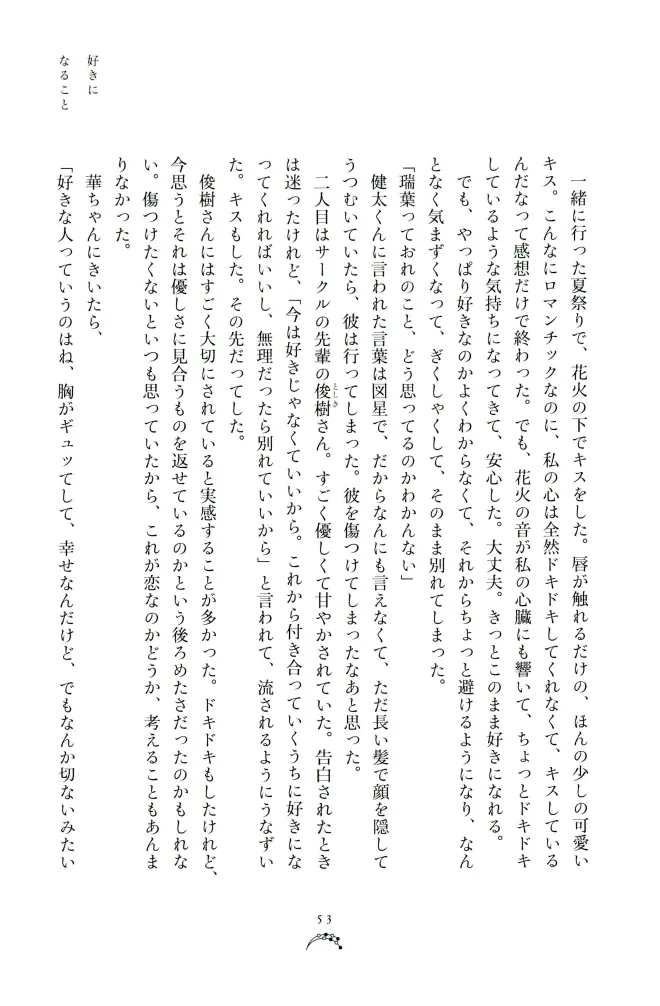 好きに
なること
一緒に行った夏祭りで、花火の下でキスをした。唇が触れるだけの、ほんの少しの可愛い
キス。こんなにロマンチックなのに、私の心は全然ドキドキしてくれなくて、キスしている
んだなって感想だけで終わった。でも、花火の音が私の心臓にも響いて、ちょっとドキドキ
しているような気持ちになってきて、安心した。大丈夫。きっとこのまま好きになれる。
でも、やっぱり好きなのかよくわからなくて、それからちょっと避けるようになり、なん
となく気まずくなって、ぎくしゃくして、そのまま別れてしまった。
「瑞葉っておれのこと、どう思ってるのかわかんない」
健太くんに言われた言葉は図星で、だからなんにも言えなくて、ただ長い髪で顔を隠して
うつむいていたら、彼は行ってしまった。彼を傷つけてしまったなあと思った。
二人目はサークルの先輩の俊樹さん。すごく優しくて甘やかされていた。告白されたとき
としき
は迷ったけれど、「今は好きじゃなくていいから。これから付き合っていくうちに好きにな
ってくれればいいし、無理だったら別れていいから」と言われて、流されるようにうなずい
た。キスもした。その先だってした。
俊樹さんにはすごく大切にされていると実感することが多かった。ドキドキもしたけれど、
今思うとそれは優しさに見合うものを返せているのかという後ろめたさだったのかもしれな
い。傷つけたくないといつも思っていたから、これが恋なのかどうか、考えることもあんま
りなかった。
華ちゃんにきいたら、
「好きな人っていうのはね、胸がギュッてして、幸せなんだけど、でもなんか切ないみたい
53